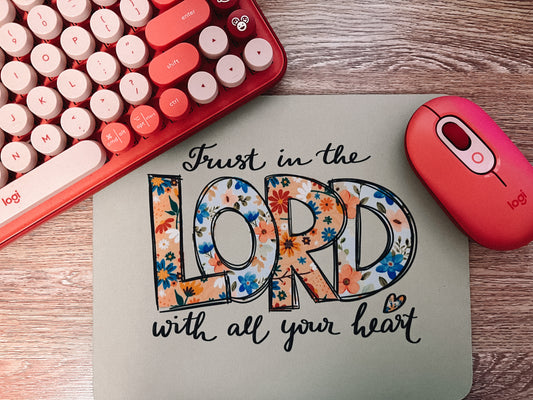 9 0
enter
I O P
shift
J K L
ctrl
N M
logi
logi
Trust in the
LORD
with all your heart